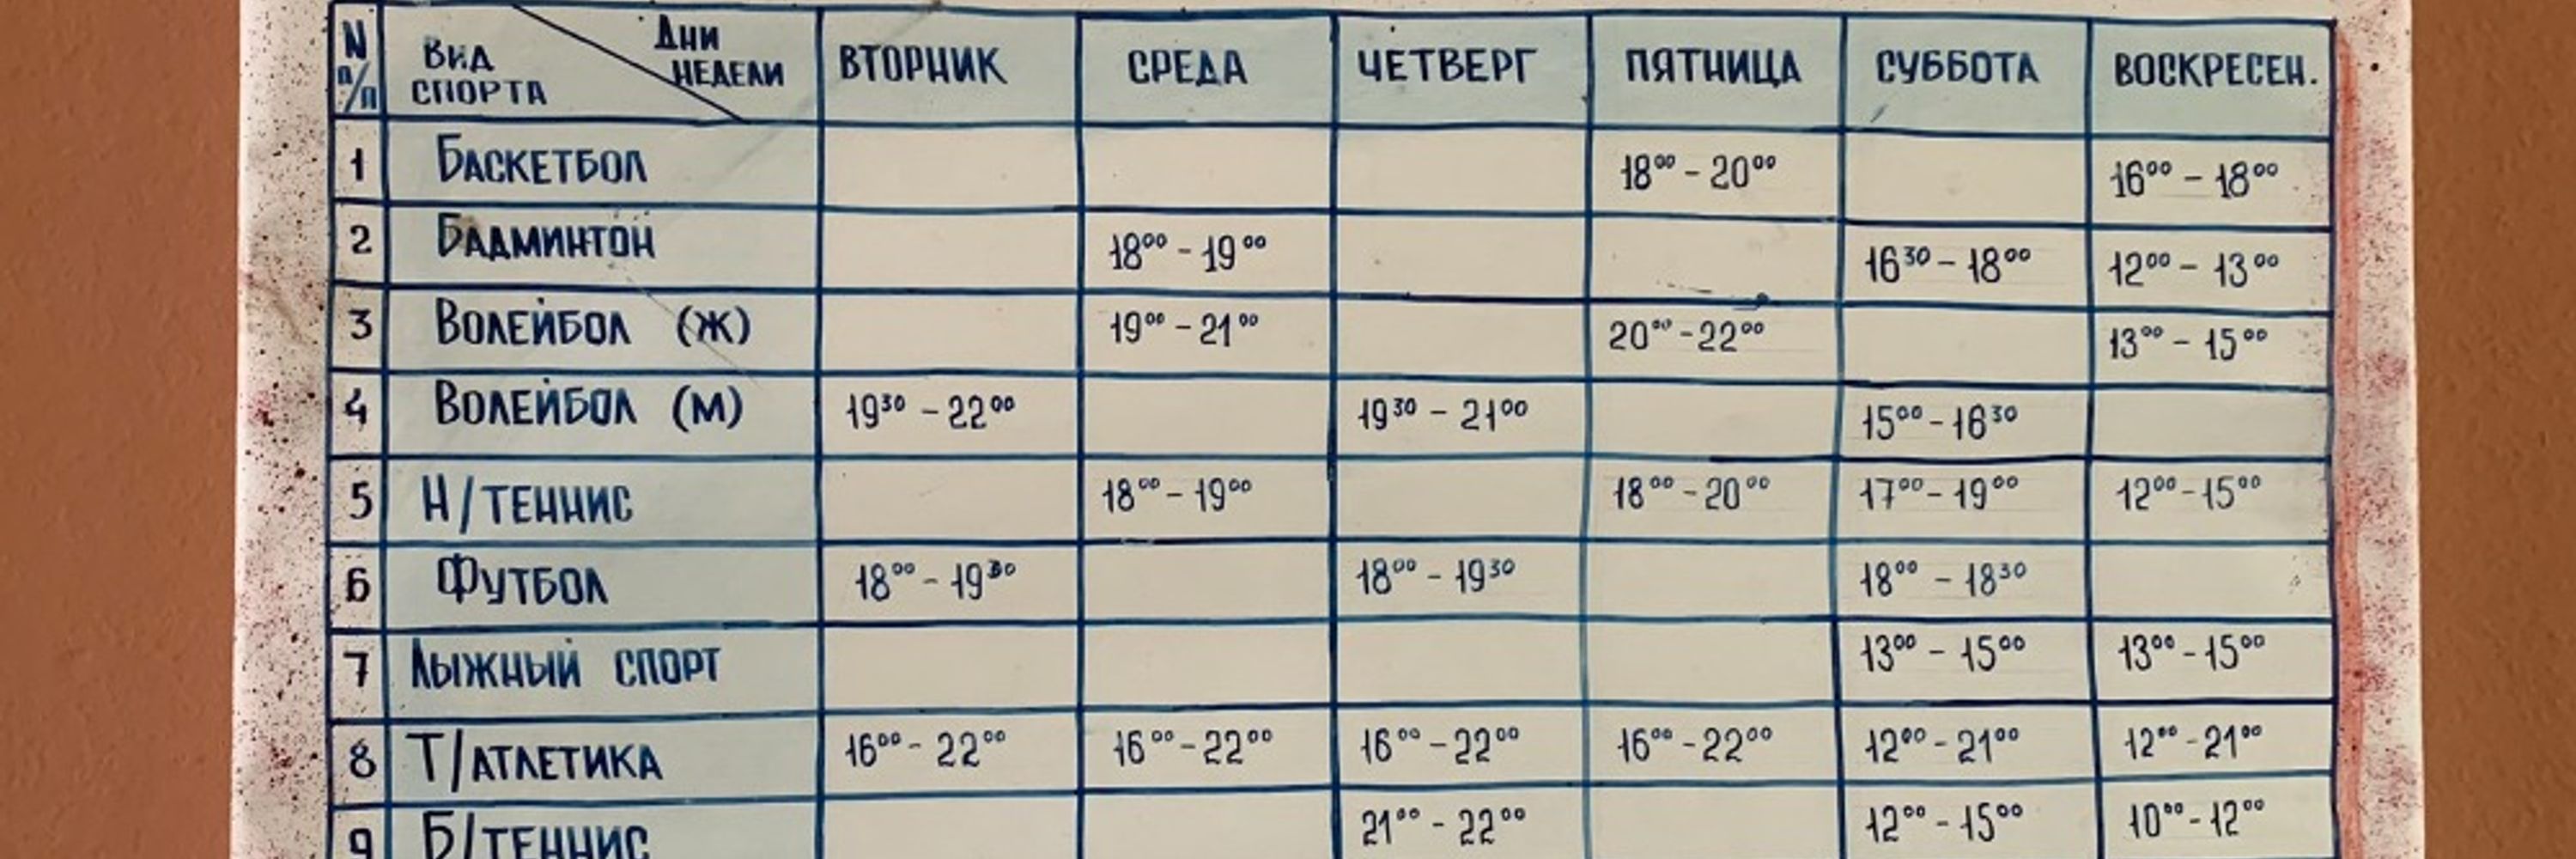 N п/п Вид спорта Дни недели ВТОРНИК СРЕДА ЧЕТВЕРГ ПЯТНИЦА СУББОТА ВОСКРЕСЕН.
1 Баскетбол 18⁰⁰ - 20⁰⁰ 16⁰⁰ - 18⁰⁰
2 Бадминтон 18⁰⁰ - 19⁰⁰ 16³⁰ - 18⁰⁰ 12⁰⁰ - 13⁰⁰
3 Волейбол (Ж) 19⁰⁰ - 21⁰⁰ 20⁰⁰ - 22⁰⁰ 13⁰⁰ - 15⁰⁰
4 Волейбол (М) 19³⁰ - 22⁰⁰ 19³⁰ - 21⁰⁰ 15⁰⁰ - 16³⁰
5 Н/теннис 18⁰⁰ - 19⁰⁰ 18⁰⁰ - 20⁰⁰ 17⁰⁰ - 19⁰⁰ 12⁰⁰ - 15⁰⁰
6 Футбол 18⁰⁰ - 19³⁰ 18⁰⁰ - 19³⁰ 18⁰⁰ - 18³⁰
7 Лыжный спорт 13⁰⁰ - 15⁰⁰ 13⁰⁰ - 15⁰⁰
8 Т/атлетика 16⁰⁰ - 22⁰⁰ 16⁰⁰ - 22⁰⁰ 16⁰⁰ - 22⁰⁰ 16⁰⁰ - 22⁰⁰ 12⁰⁰ - 21⁰⁰ 12⁰⁰ - 21⁰⁰
9 Б/теннис 21⁰⁰ - 22⁰⁰ 12⁰⁰ - 15⁰⁰ 10⁰⁰ - 12⁰⁰